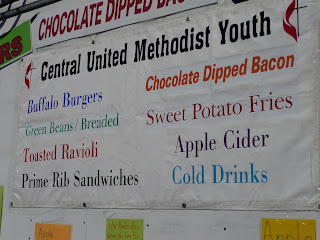 CHOCOLATE DIPPED BACON
ERS
Central United Methodist Youth
Chocolate Dipped Bacon
Buffalo Burgers
Sweet Potato Fries
Green Beans / Breaded
Apple Cider
Toasted Ravioli
Cold Drinks
Prime Rib Sandwiches
Apple
Apple